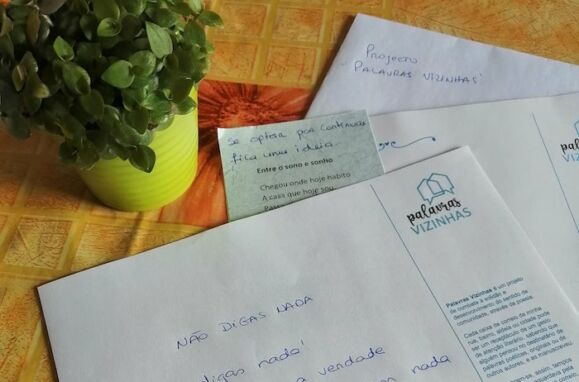 Projecto
PALAVRAS VIZINHAS
Se optera por continuar
fica uma ideia
Entre o sono e sonho
Chegou onde hoje habito
A casa que hoje sou.
palavras
VIZINHAS
palavras
VIZINHAS
Palavras Vizinhas é um projeto
de combate à solidão e
desenvolvimento do sentido de
comunidade, através da poesia.
Cada caixa de correio da minha
rua, bairro, aldeia ou cidade pode
ser um receptáculo de um gesto
de atenção literário, sabendo que
algum pensou no destinatário de
palavras poéticas, originais ou de
outros autores, e as manuscreveu
NÃO DIGAS NADA
digas nada!
a verdade
nada